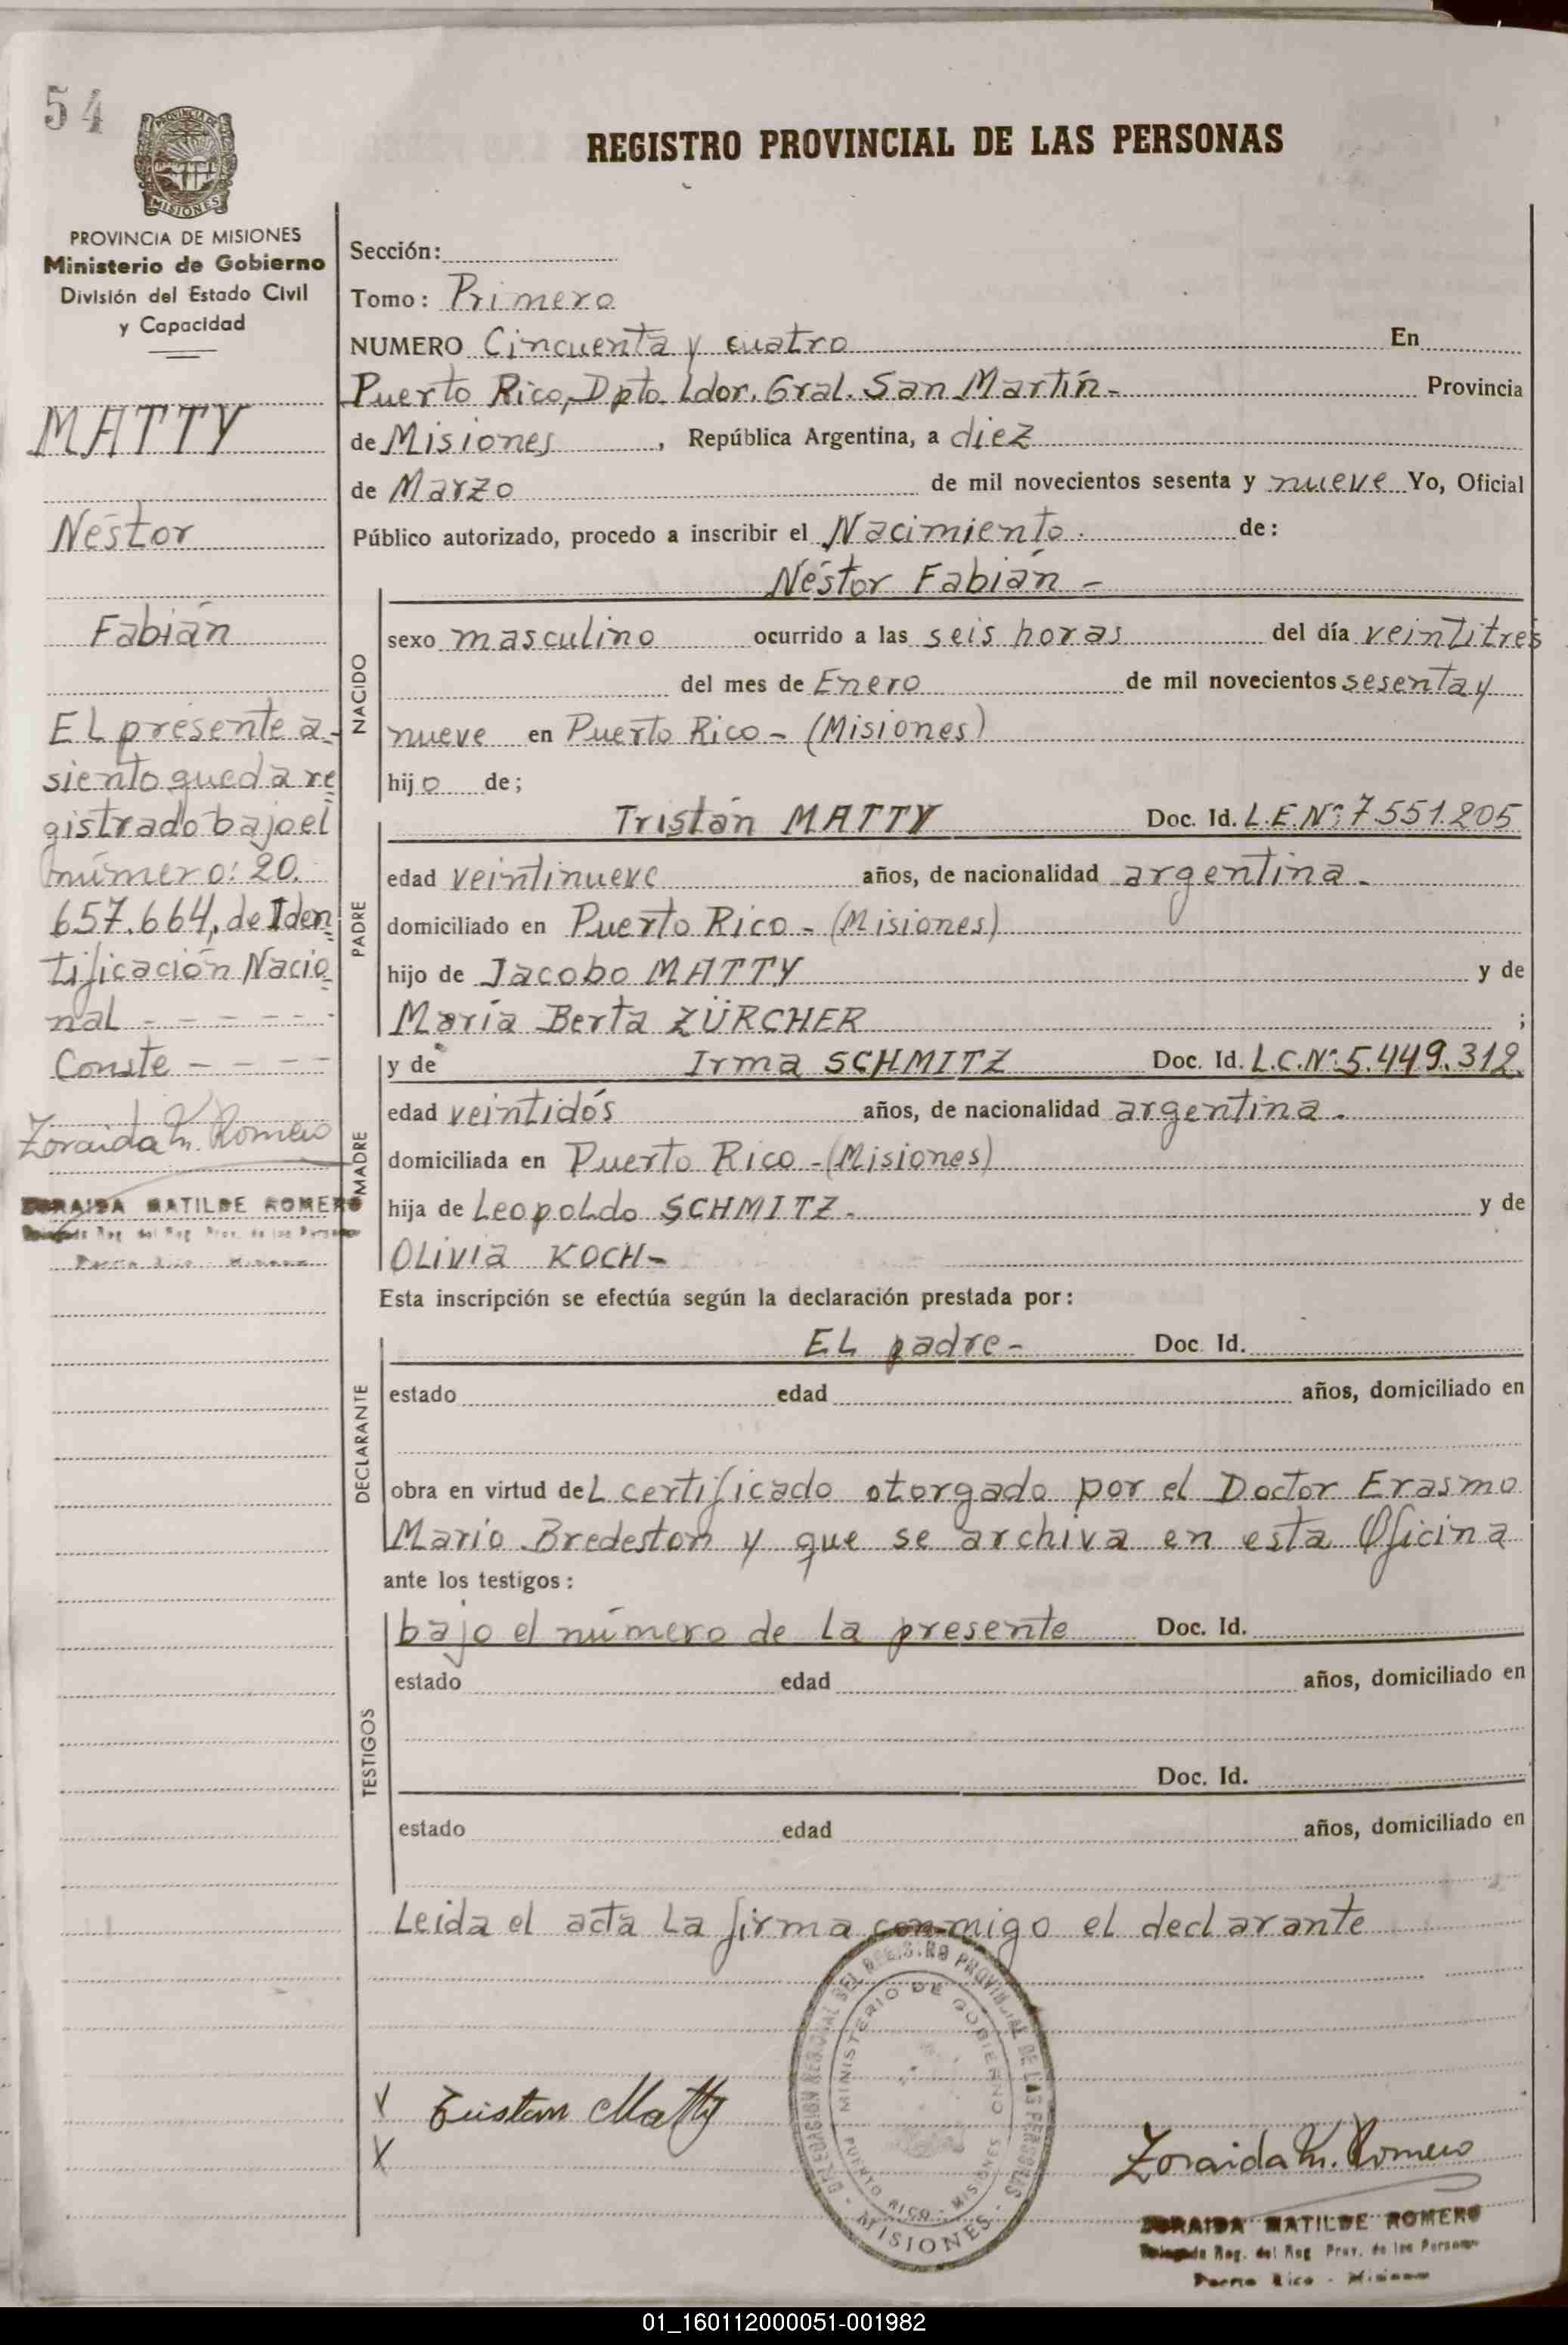 54
PROVINCIA DE
MISIONES
REGISTRO PROVINCIAL DE LAS PERSONAS
PROVINCIA DE MISIONES
Ministerio de Gobierno
División del Estado Civil
y Capacidad
MATTY
Néstor
Fabián
El presente a-
siento queda re
gistrado bajo el
número: 20.
657.664, de Iden
tificación Nacio
nal - - - - - -
Conste - - - -
Zoraida M. Romero
ZORAIDA MATILDE ROMERO
Delegada Reg. del Reg. Prov. de las Personas
Puerto Rico - Misiones
Sección:
Tomo: Primero
NUMERO Cincuenta y cuatro En
Puerto Rico, Dpto. Ldor. Gral. San Martín- Provincia
de Misiones, República Argentina, a diez
de Marzo de mil novecientos sesenta y nueve Yo, Oficial
Público autorizado, procedo a inscribir el Nacimiento. de:
NACIDO
Néstor Fabián -
sexo masculino ocurrido a las seis horas del día veintitres
del mes de Enero de mil novecientos sesenta y
nueve en Puerto Rico - (Misiones)
hijo de;
PADRE
Tristán MATTY Doc. Id. L.E.Nº: 7.551.205
edad veintinueve años, de nacionalidad argentina.
domiciliado en Puerto Rico - (Misiones)
hijo de Jacobo MATTY y de
María Berta ZÜRCHER ;
MADRE
y de Irma SCHMITZ Doc. Id. L.C.Nº: 5.449.312.
edad veintidós años, de nacionalidad argentina.
domiciliada en Puerto Rico - (Misiones)
hija de Leopoldo SCHMITZ. y de
Olivia KOCH-
Esta inscripción se efectúa según la declaración prestada por:
DECLARANTE
El padre- Doc. Id.
estado edad años, domiciliado en
obra en virtud del certificado otorgado por el Doctor Erasmo
Mario Bredeston y que se archiva en esta Oficina
ante los testigos:
TESTIGOS
bajo el número de la presente Doc. Id.
estado edad años, domiciliado en
Doc. Id.
estado edad años, domiciliado en
Leida el acta la firma conmigo el declarante
DELEGACION REGIONAL DEL REGISTRO PROVINCIAL DE LAS PERSONAS
MINISTERIO DE GOBIERNO
PUERTO RICO - MISIONES
- MISIONES -
Tristan Matty
Zoraida M. Romero
ZORAIDA MATILDE ROMERO
Delegada Reg. del Reg. Prov. de las Personas
Puerto Rico - Misiones
01_160112000051-001982